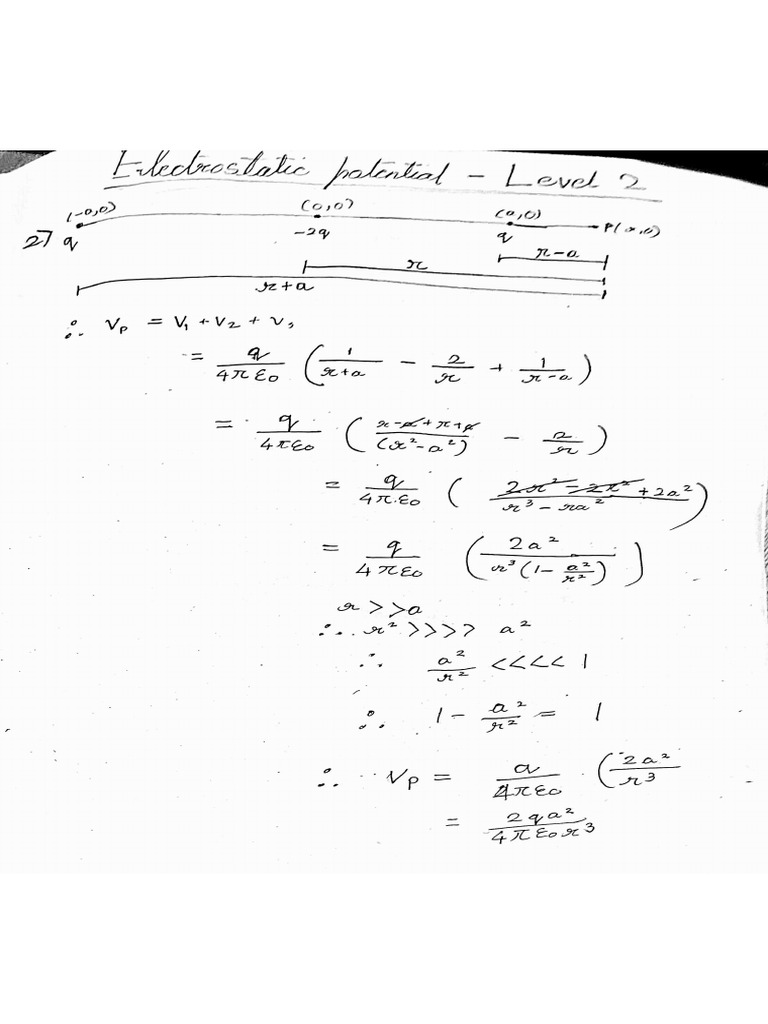 Electrostatic potential - Level 2
(-a,0) (0,0) (a,0) P(x,0)
2] q -2q q
r r-a
r+a
∴ Vp = V₁ + V₂ + V₃
= q/4πε₀ (1/r+a - 2/r + 1/r-a)
= q/4πε₀ (r-a+r+a/(r²-a²) - 2/r)
= q/4πε₀ (2r²-2r²+2a²/r³-ra²)
= q/4πε₀ (2a²/r³(1-a²/r²))
r>>a
∴ r² >>>> a²
∴ a²/r² <<<< 1
∴ 1 - a²/r² = 1
∴ Vp = q/4πε₀ (2a²/r³
= 2qa²/4πε₀r³